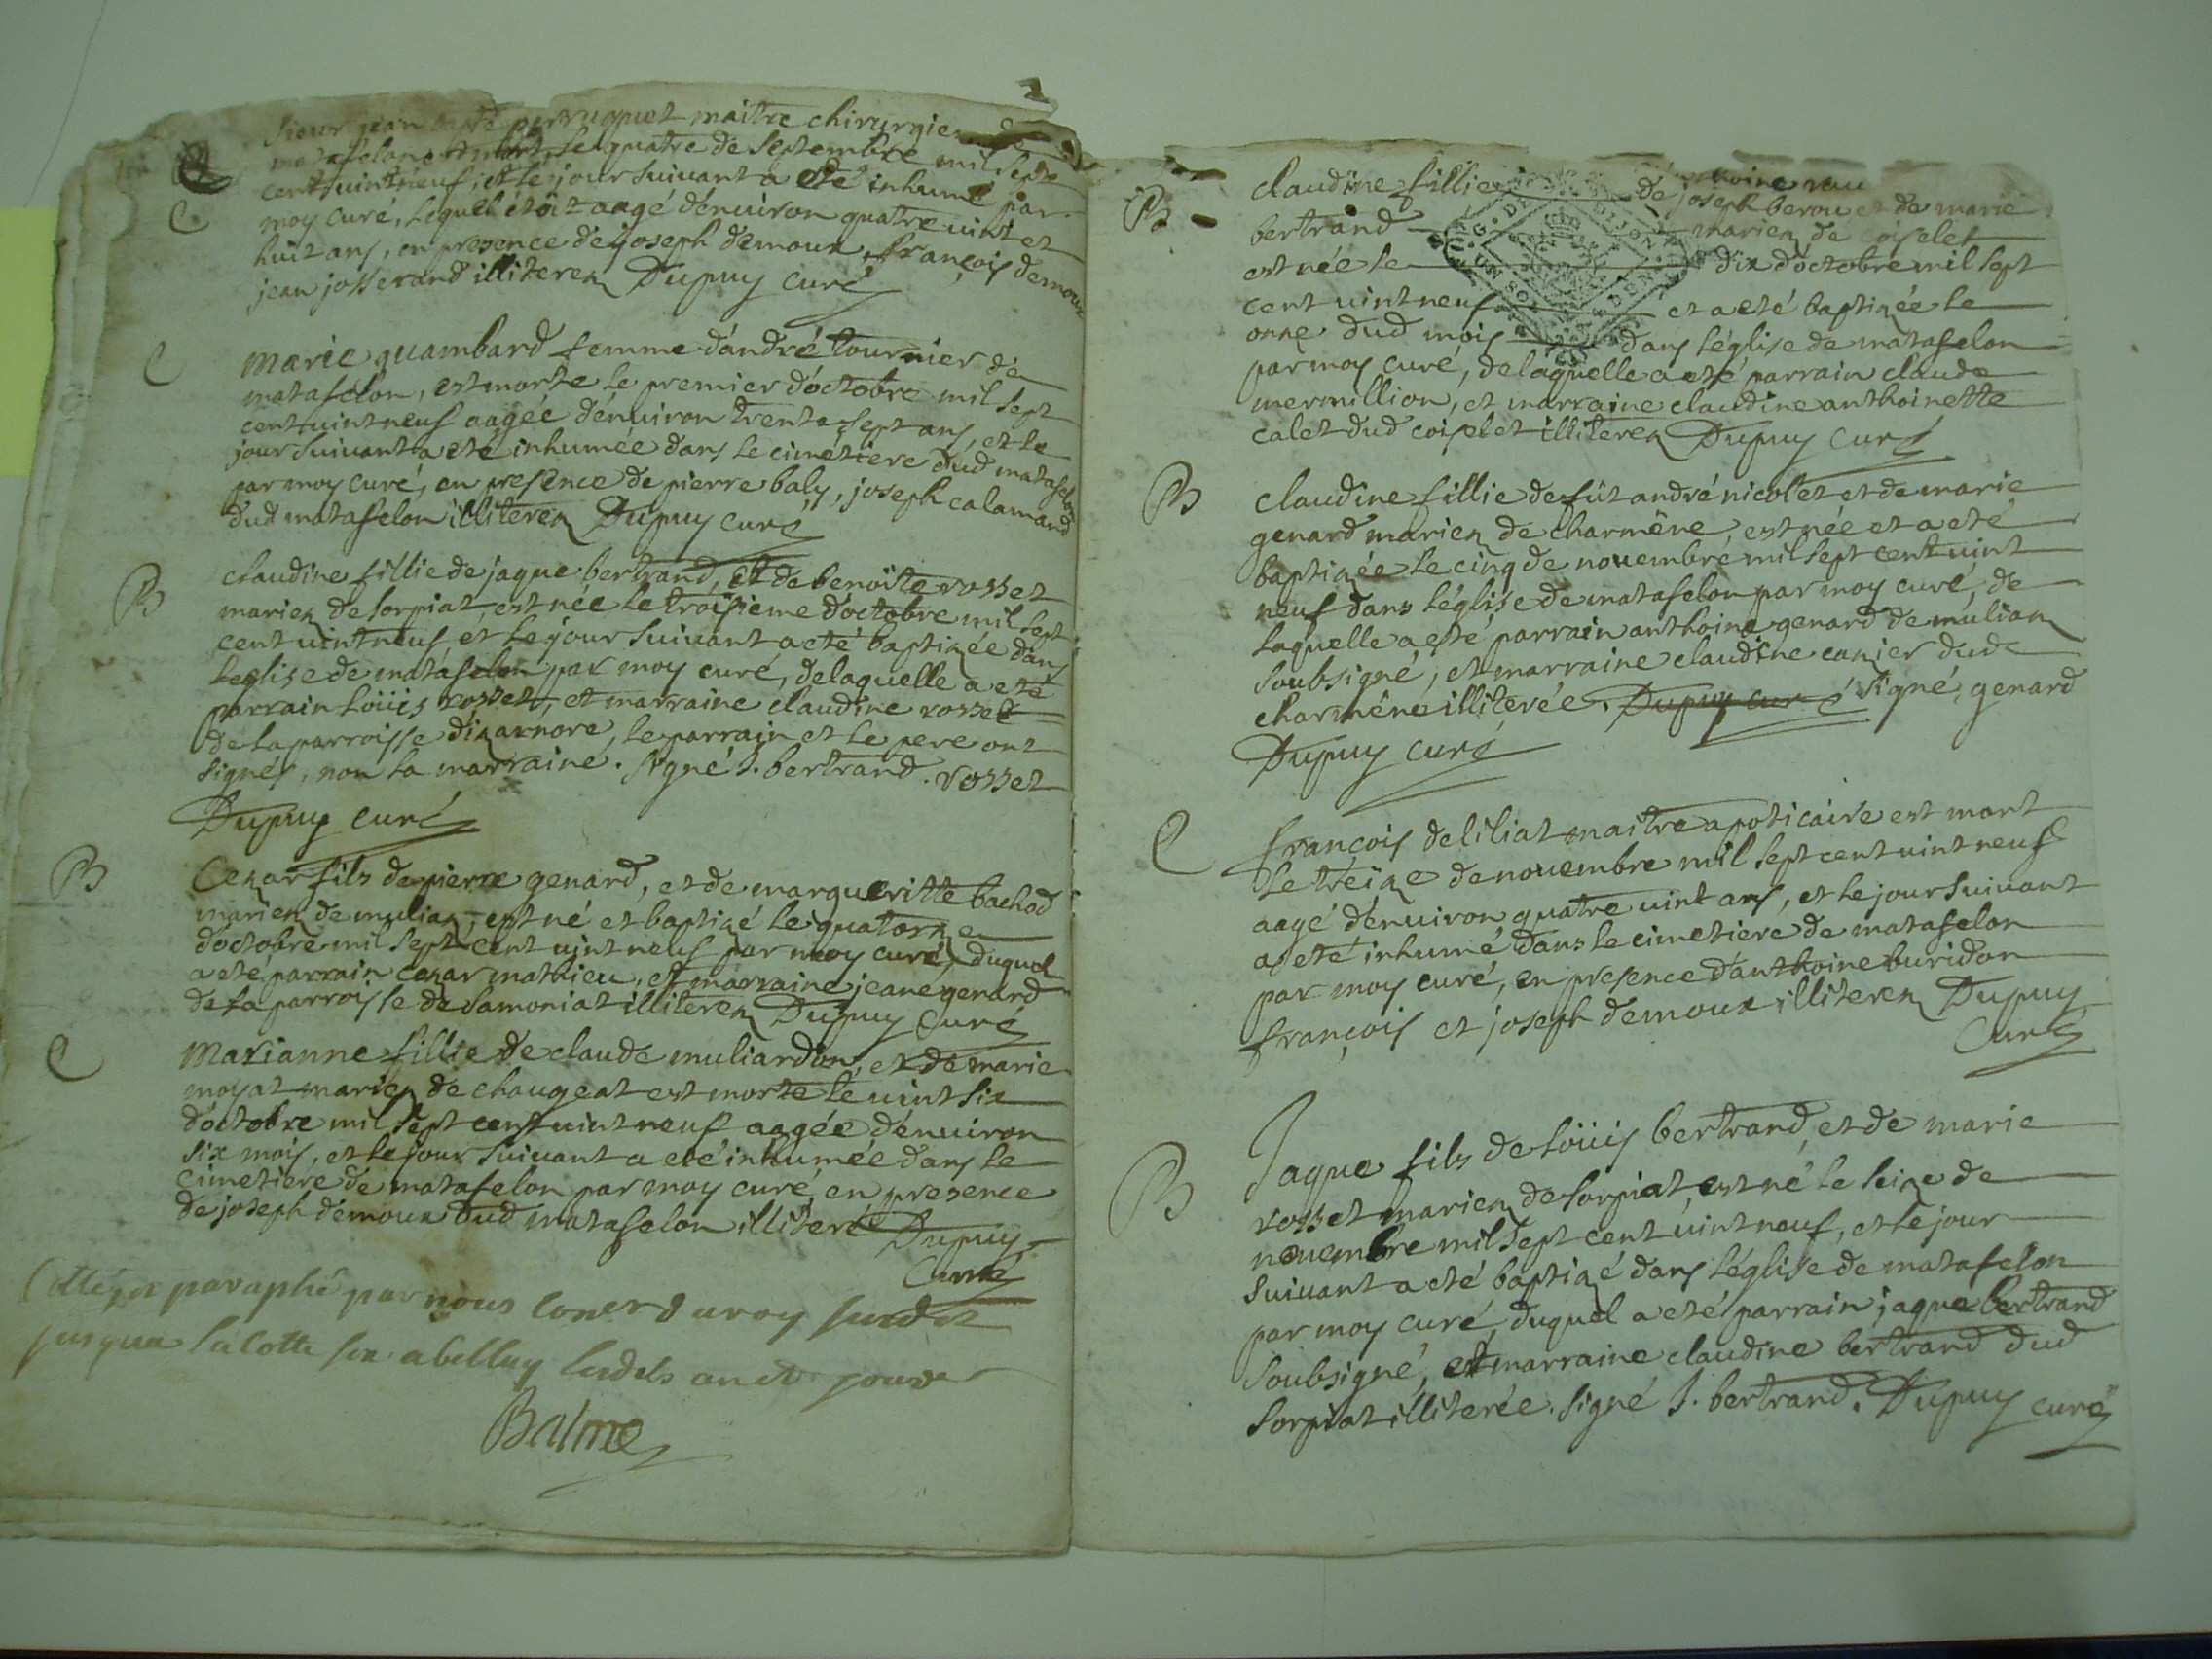 2
sieur jean perruquet maitre chirurgien de
matafelon est mort le quatre de septembre mil sept
cent vint neuf, et le jour suivant a eté inhumé par
C
moy curé, lequel étoit aagé d'environ quatre vint et
huit ans, en presence de joseph demoux, françois demoux
jean josserand illiterez Dupuy curé
C
Marie guambard femme d'andré tournier de
matafelon, est morte le premier d'octobre mil sept
cent vint neuf aagée d'environ trente sept ans, et le
jour suivant a eté inhumée dans le cimétiere dud matafelon
par moy curé, en presence de pierre baly, joseph calamand
dud matafelon illiterez Dupuy curé
B
claudine fillie de jaque bertrand, et de benoite rosset
mariez de sorpiat, est née le troisieme d'octobre mil sept
cent vint neuf, et le jour suivant a eté baptizée dans
leglise de matafelon par moy curé, de laquelle a eté
parrain loüis rosset, et marraine claudine rosset
de la parroisse d'izarnore, le parrain et le pere ont
signés, non la marraine. signé J. bertrand. rosset
Dupuy curé
B
Cezar fils de pierre genard, et de margueritte bachod
mariez de muliaz, est né et baptizé le quatorze
d'octobre mil sept cent vint neuf par moy curé, duquel
a eté parrain cezar mathieu, et marraine jeane genard
de la parroisse de samoniat illiterez Dupuy curé
C
Marianne fillie de claude muliardon, et de marie
moyat mariez de chaugeat est morte le vint six
d'octobre mil sept cent vint neuf aagée d'environ
six mois, et le jour suivant a eté inhumée dans le
cimetiere de matafelon par moy curé en presence
de joseph demoux dud matafelon illiteré Dupuy
Curé
Cotté et paraphé par nous coner d uroy
jusqua la cotte six abelley
Balme
B
claudine fillie de joseph berou et de marie
bertrand mariez de coiselet
est née le dix d'octobre mil sept
cent vint neuf et a eté baptizée le
onze dud mois dans léglise de matafelon
par moy curé, de laquelle a eté parrain claude
mermillion, et marraine claudine anthoinette
calet dud coiselet illiterez Dupuy curé
B
claudine fillie de fût andré nicolet et de marie
genard mariez de charméne, est née et a eté
baptizée le cinq de novembre mil sept cent vint
neuf dans léglise de matafelon par moy curé, de
laquelle a eté parrain anthoine genard de muliaz
soubsigné, et marraine claudine cazier dud
charméne illiterée. Dupuy curé signé, genard
Dupuy curé
C
françois deliliat maitre apoticaire est mort
le tréize de novembre mil sept cent vint neuf
aagé d'environ quatre vint ans, et le jour suivant
a eté inhumé dans le cimetiere de matafelon
par moy curé, en presence d'anthoine buridon
françois et joseph demoux illiterez Dupuy
Curé
B
Jaque fils de loüis bertrand, et de marie
rosset mariez de sorpiat, est né le seize de
novembre mil sept cent vint neuf, et le jour
suivant a eté baptizé dans léglise de matafelon
par moy curé, duquel a eté parrain jaque bertrand
soubsigné, et marraine claudine bertrand dud
sorpiat illiterée. signé J. bertrand. Dupuy curé